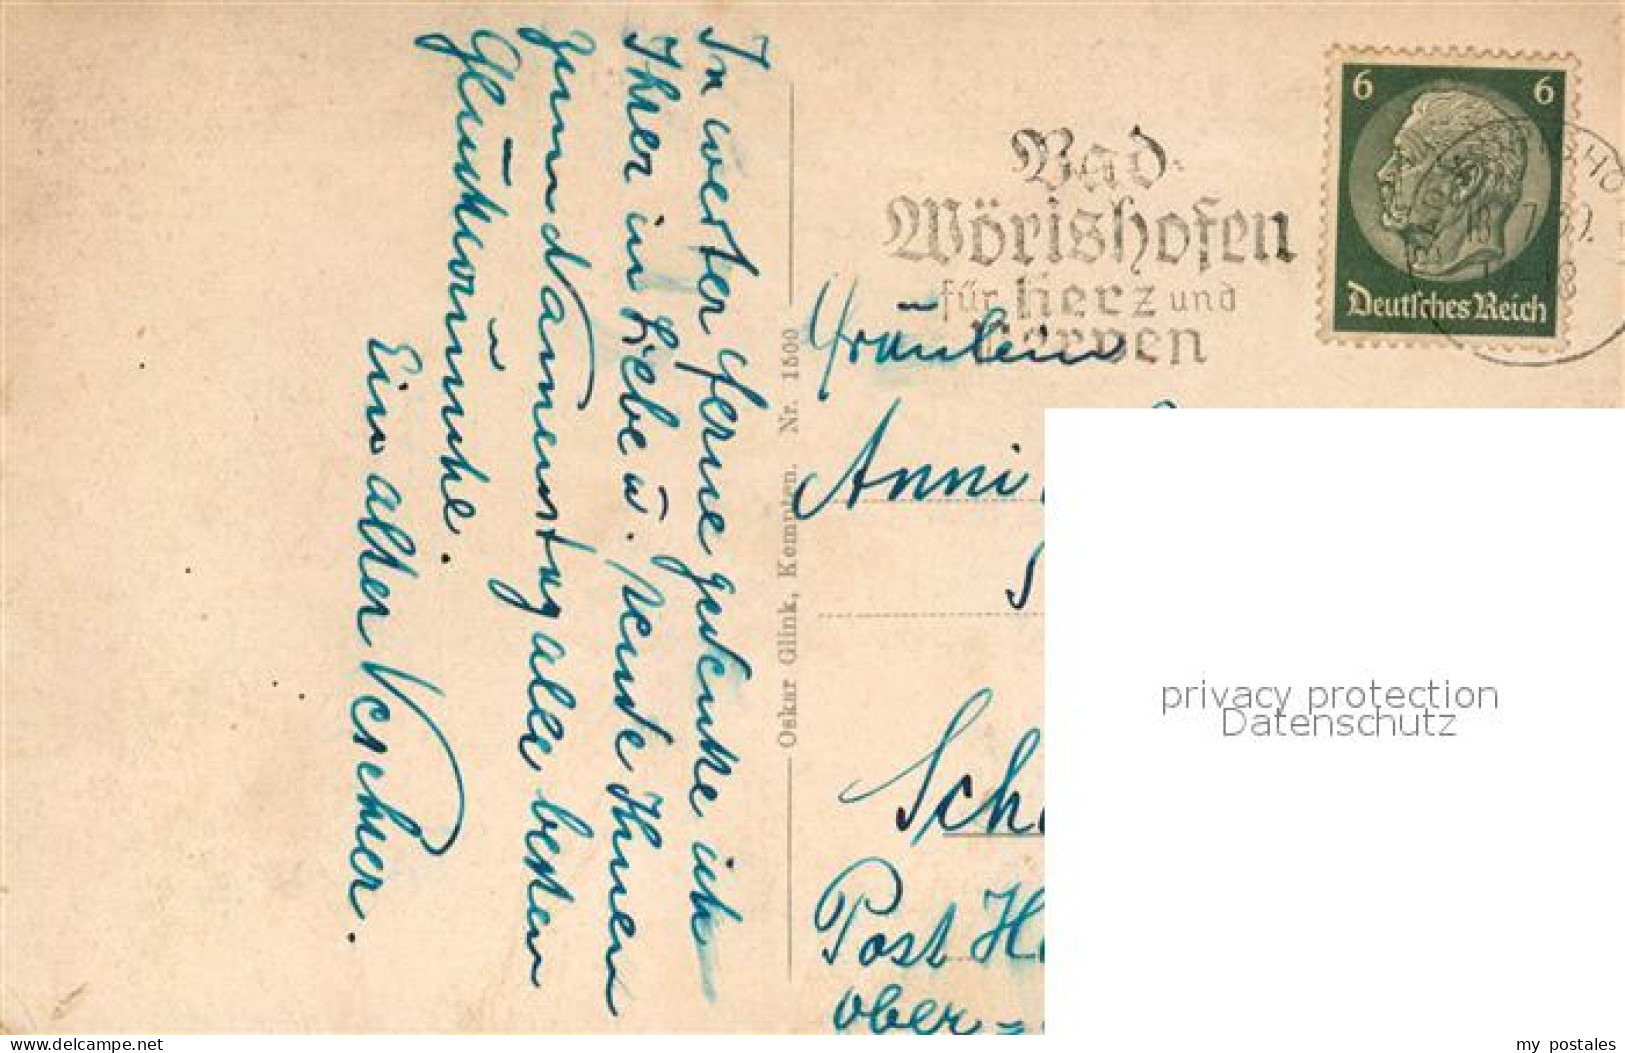 In weiter Ferne gedenke ich
Ihrer in Liebe u. sende Ihnen
zum Namenstag alle besten
Glückwünsche.
Ein alter
Oskar Glink, Kempten. Nr. 1500
Bad-
Wörishofen
für Herz und
Nerven
6 6
Deutsches Reich
18. 7.
Fräulein
Anni
Sch
Post H
ober=
privacy protection
Datenschutz
www.delcampe.net
my_postales